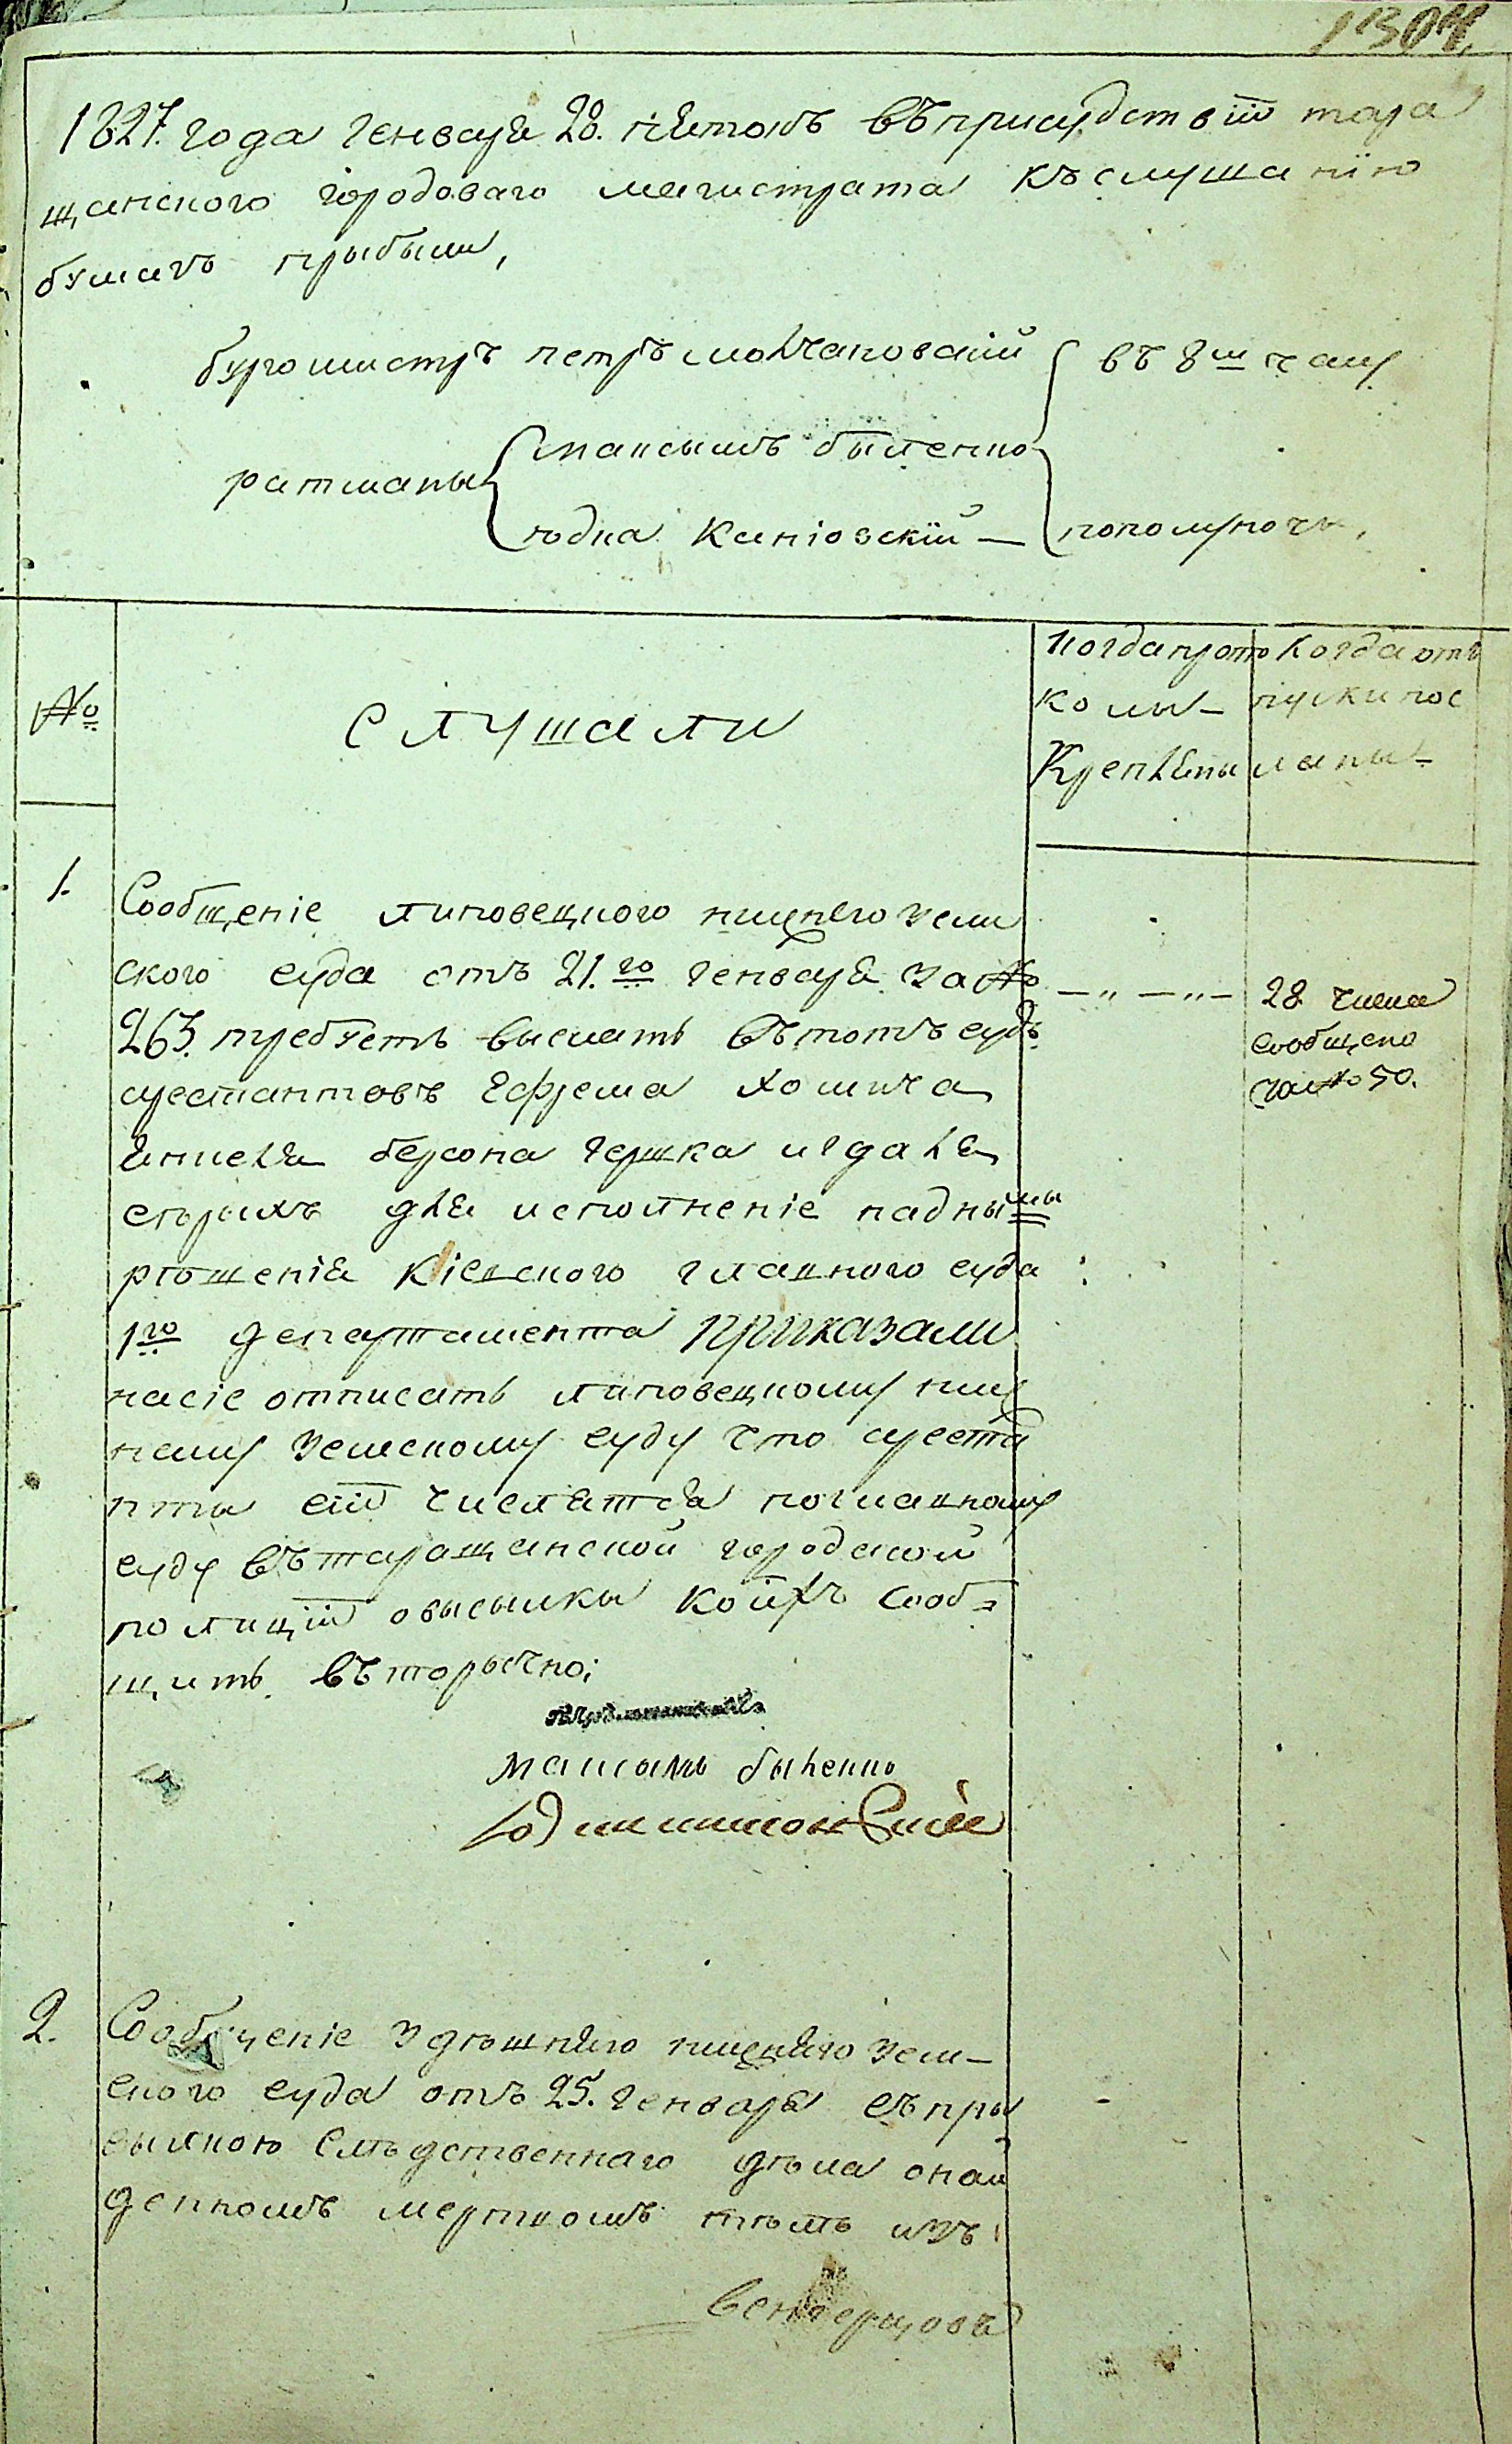 1304.
1827. года генваря 28. пятокъ въ присудствіи тара
щанского городоваго магистрата къ слушанію
бумагъ прыбыли,
бургомистръ петръ молчановскій въ 8м часу
ратманы максымъ быченко
юдка каніовскій — пополуночы,
№
слушали
когда прото
колы
крепляны
когда отъ
пуски пос
ланы
1.
Сообщеніе липовецкого нижнего земс
ского суда отъ 21.го генваря за №
263. требуетъ выслать въ тотъ судъ
арестантовъ Ефрема хомича
берсона гершка
для исполненіе надными
рѣшенія кіевского главного суда
1го департамента приказали
насіе отписать липовецкому ниж
нему земскому суду что ареста
нты сіи числятся по главному
суду въ таращанской городской
полиціи о высылки коихъ сооб=
щить въторычно;
28 числа
сообщено
за № 50.
максымъ быченко
2.
Сообщеніе здѣшняго нижняго зем–
ского суда отъ 25. генваря съ пры
сылкою слѣдственнаго дѣла о най
денномъ мертвомъ тѣлѣ изъ